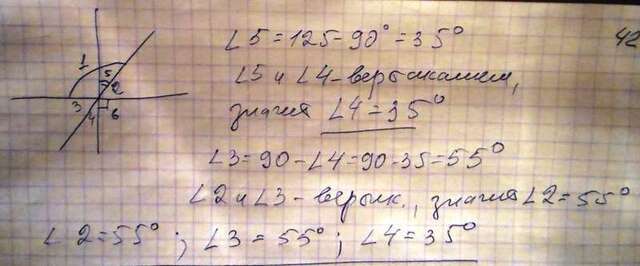 1
5
2
3
4
6
∠5=125-90°=35°
42
∠5 и ∠4-вертикальн,
значит ∠4=35°
∠3=90-∠4=90-35=55°
∠2 и ∠3-вертик., значит ∠2=55°
∠2=55°; ∠3=55°; ∠4=35°